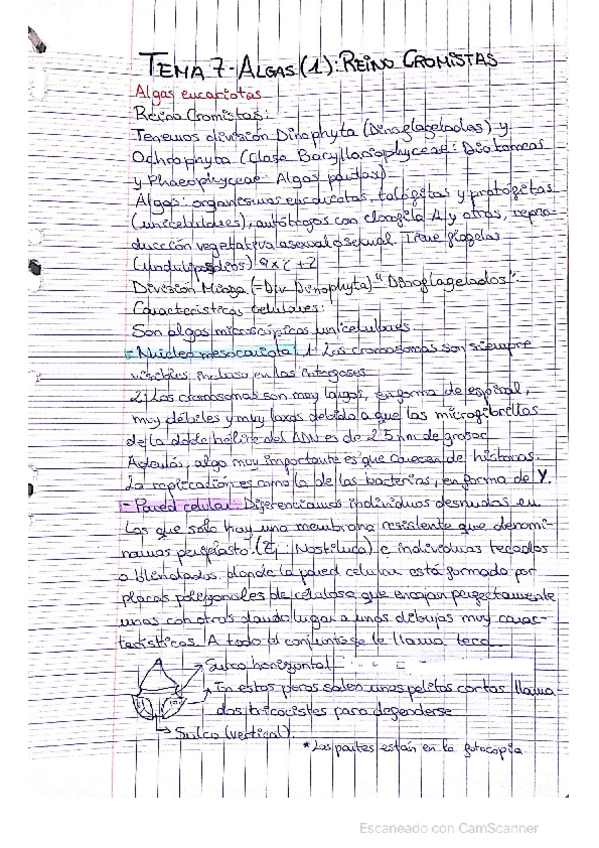 TEMA 7-ALGAS(1):REINO CROMISTAS
Algas eucariotas
Reino Cromistas:
Tenemos división Dinophyta (Dinoflagelados) y
Ochrophyta (Clase Baryllariophyceae: Diatomeas
y Phaeophyceae: Algas pardas)
Algas: organismos eucariotas, talófitas y protófitas
(unicelulares), autótrofos con clorofila A y otras, repro-
ducción vegetativa asexual o sexual. Tiene flagelos
(undulipodios) 9x2+2
División Miozoa (=Div. Dinophyta) "Dinoflagelados":
Características celulares:
Son algas microscópicas unicelulares
- Núcleo mesocariota: 1. Los cromosomas son siempre
visibles, incluso en las interfases
2. Los cromosomas son muy largos, en forma de espiral,
muy débiles y muy laxos debido a que las microfibrillas
de la doble hélice del ADN es de 2'5 nm de grosor
Además, algo muy importante es que carecen de histonas.
La replicación es como la de las bacterias, en forma de Y.
- Pared celular: Diferenciamos individuos desnudos en
los que solo hay una membrana resistente que denomi-
namos periplasto (Ej: Noctiluca) e individuos tecados
o blindados, donde la pared celular está formado por
placas poligonales de celulosa que encajan perfectamente
unas con otras dando lugar a unos dibujos muy carac-
terísticos. A todo el conjunto se le llama teca
Sulco horizontal
En estos poros salen unos pelitos cortos llama-
dos tricocistes para defenderse
Sulco (vertical)
*Las partes están en la fotocopia
Escaneado con CamScanner